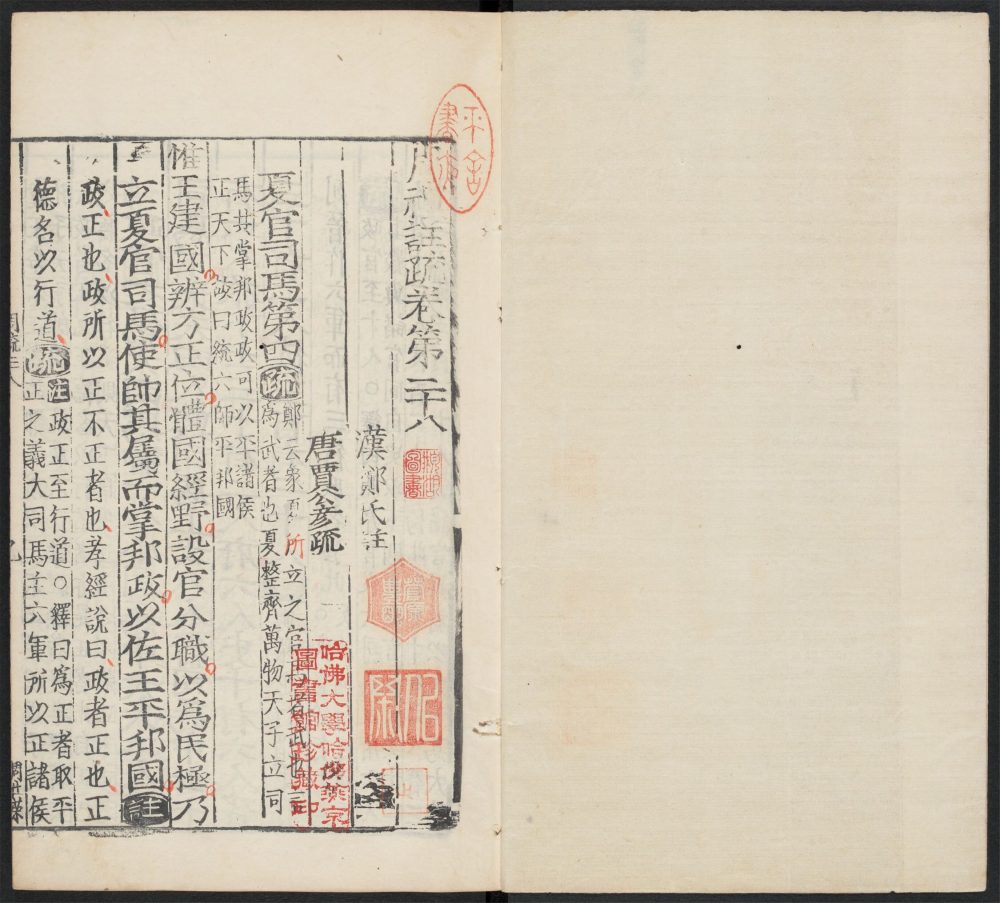 周禮註疏卷第二十八
漢鄭氏註
唐賈公彥疏
夏官司馬第四疏鄭云象夏所立之官馬者武也言
為武者也夏整齊萬物天子立司
馬共掌邦政政可以平諸侯
正天下故曰統六師平邦國
惟王建國辨方正位體國經野設官分職以爲民極乃
立夏官司馬使帥其屬而掌邦政以佐王平邦國註
政正也政所以正不正者也孝經說曰政者正也正
德名以行道疏注政正至行道○釋曰爲正者取平
正之義大司馬主六軍所以正諸侯
哈佛大學哈佛燕京
圖書館珍藏印